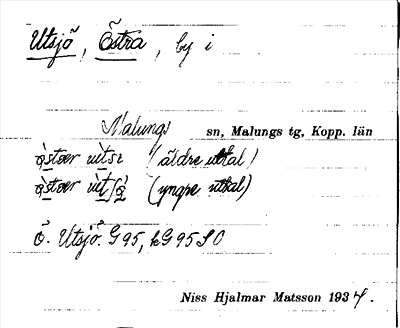 Utsjö, Östra, by i
Malungs sn, Malungs tg, Kopp. län
(äldre uttal)
(yngre uttal)
Ö. Utsjö. G 95, kG 95 SO
Niss Hjalmar Matsson 1934.